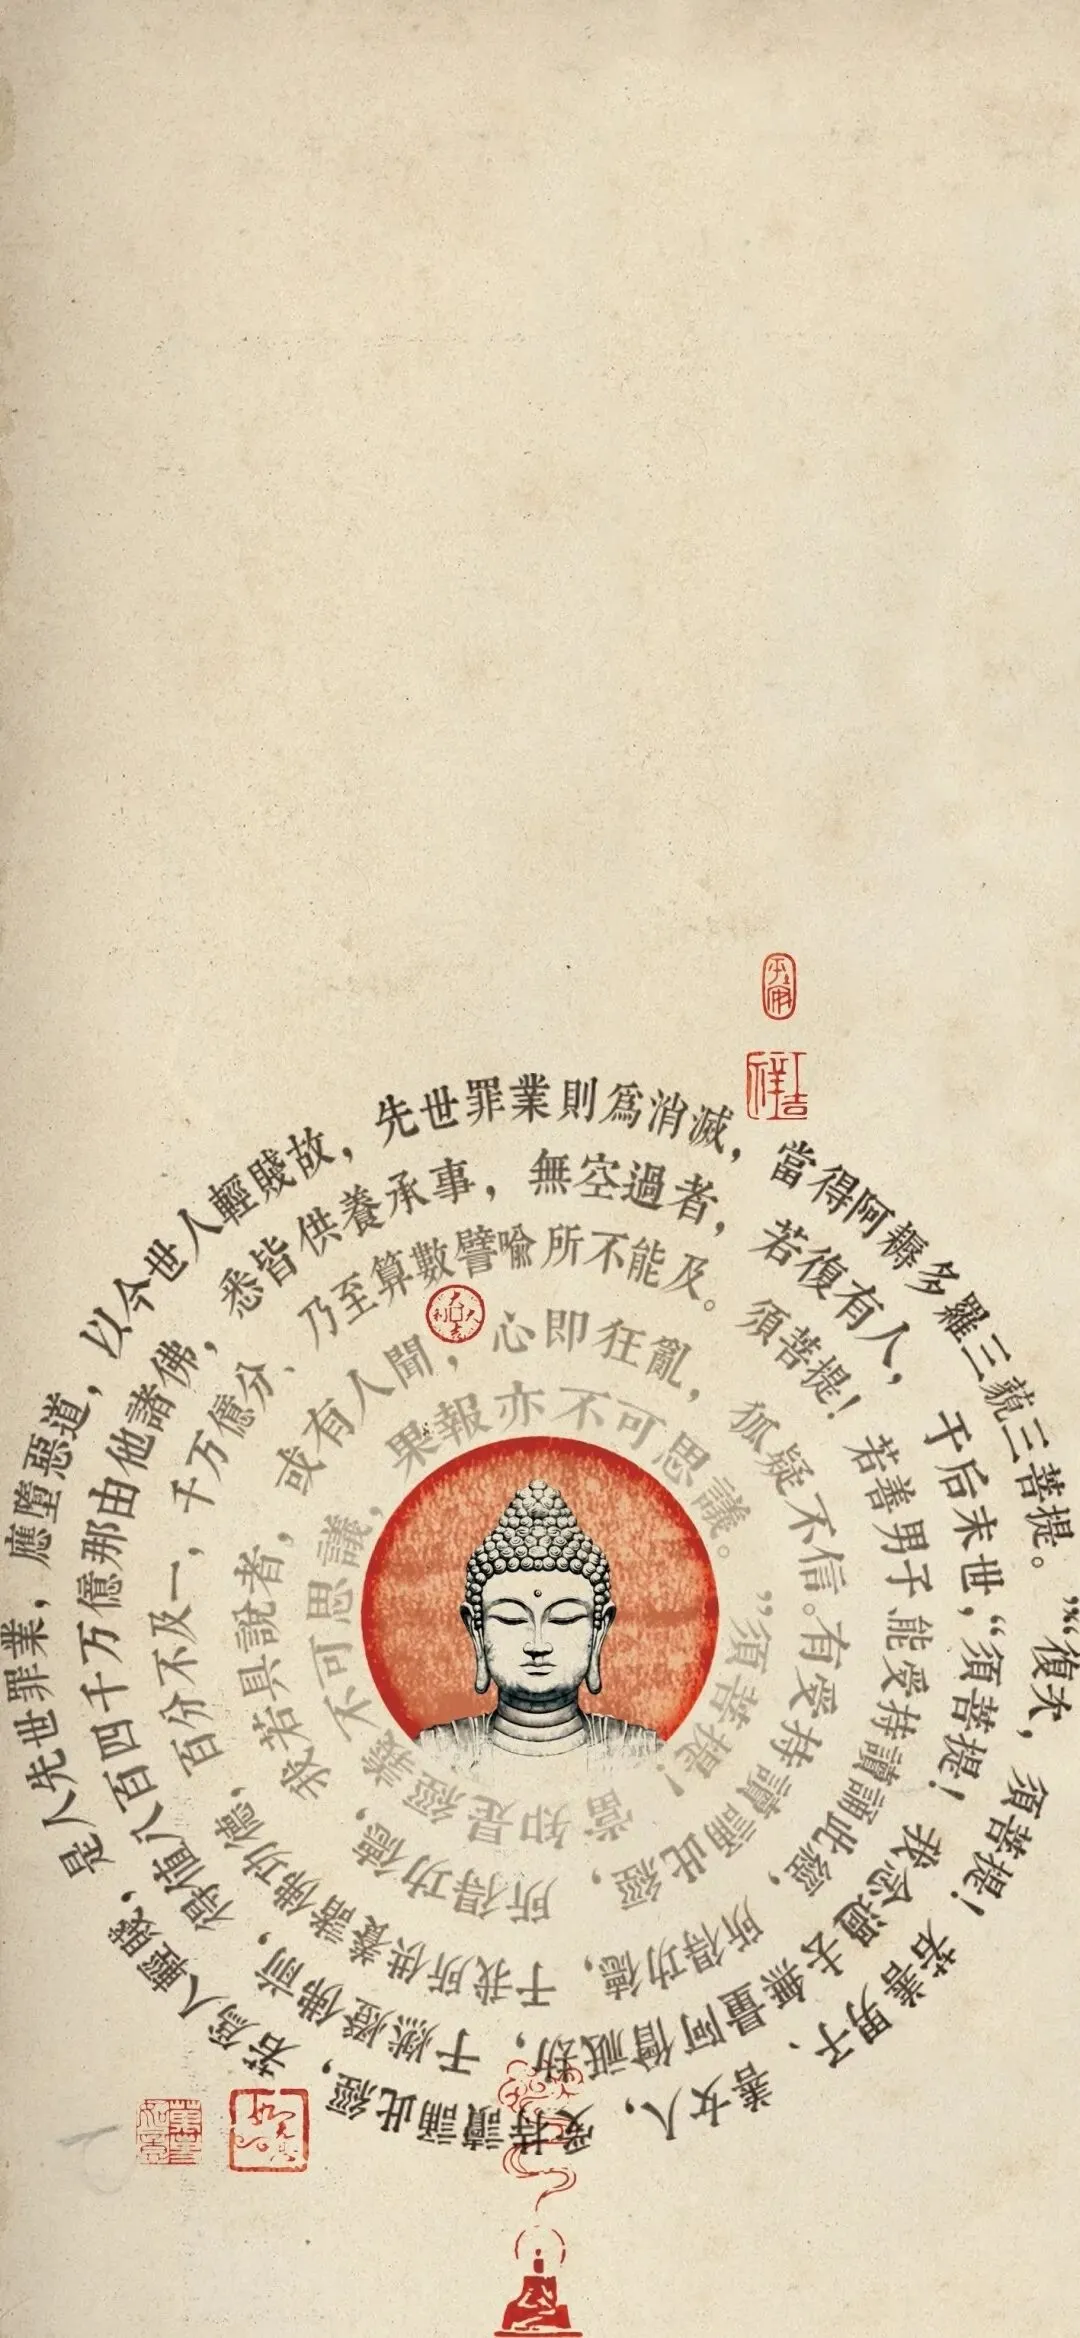 “復次，須菩提！若善男子、善女人，受持讀誦此經，若爲人輕賤，是人先世罪業，應墮惡道，以今世人輕賤故，先世罪業則爲消滅，當得阿耨多羅三藐三菩提。”
“須菩提！我念過去無量阿僧祇劫，于燃燈佛前，得值八百四千万億那由他諸佛，悉皆供養承事，無空過者，若復有人，于后末世，
能受持讀誦此經，所得功德，于我所供養諸佛功德，百分不及一，千万億分、乃至算數譬喻所不能及。須菩提！若善男子
有受持讀誦此經，所得功德，我若具說者，或有人聞，心即狂亂，狐疑不信。
須菩提！當知是經義不可思議，果報亦不可思議。”
吉祥